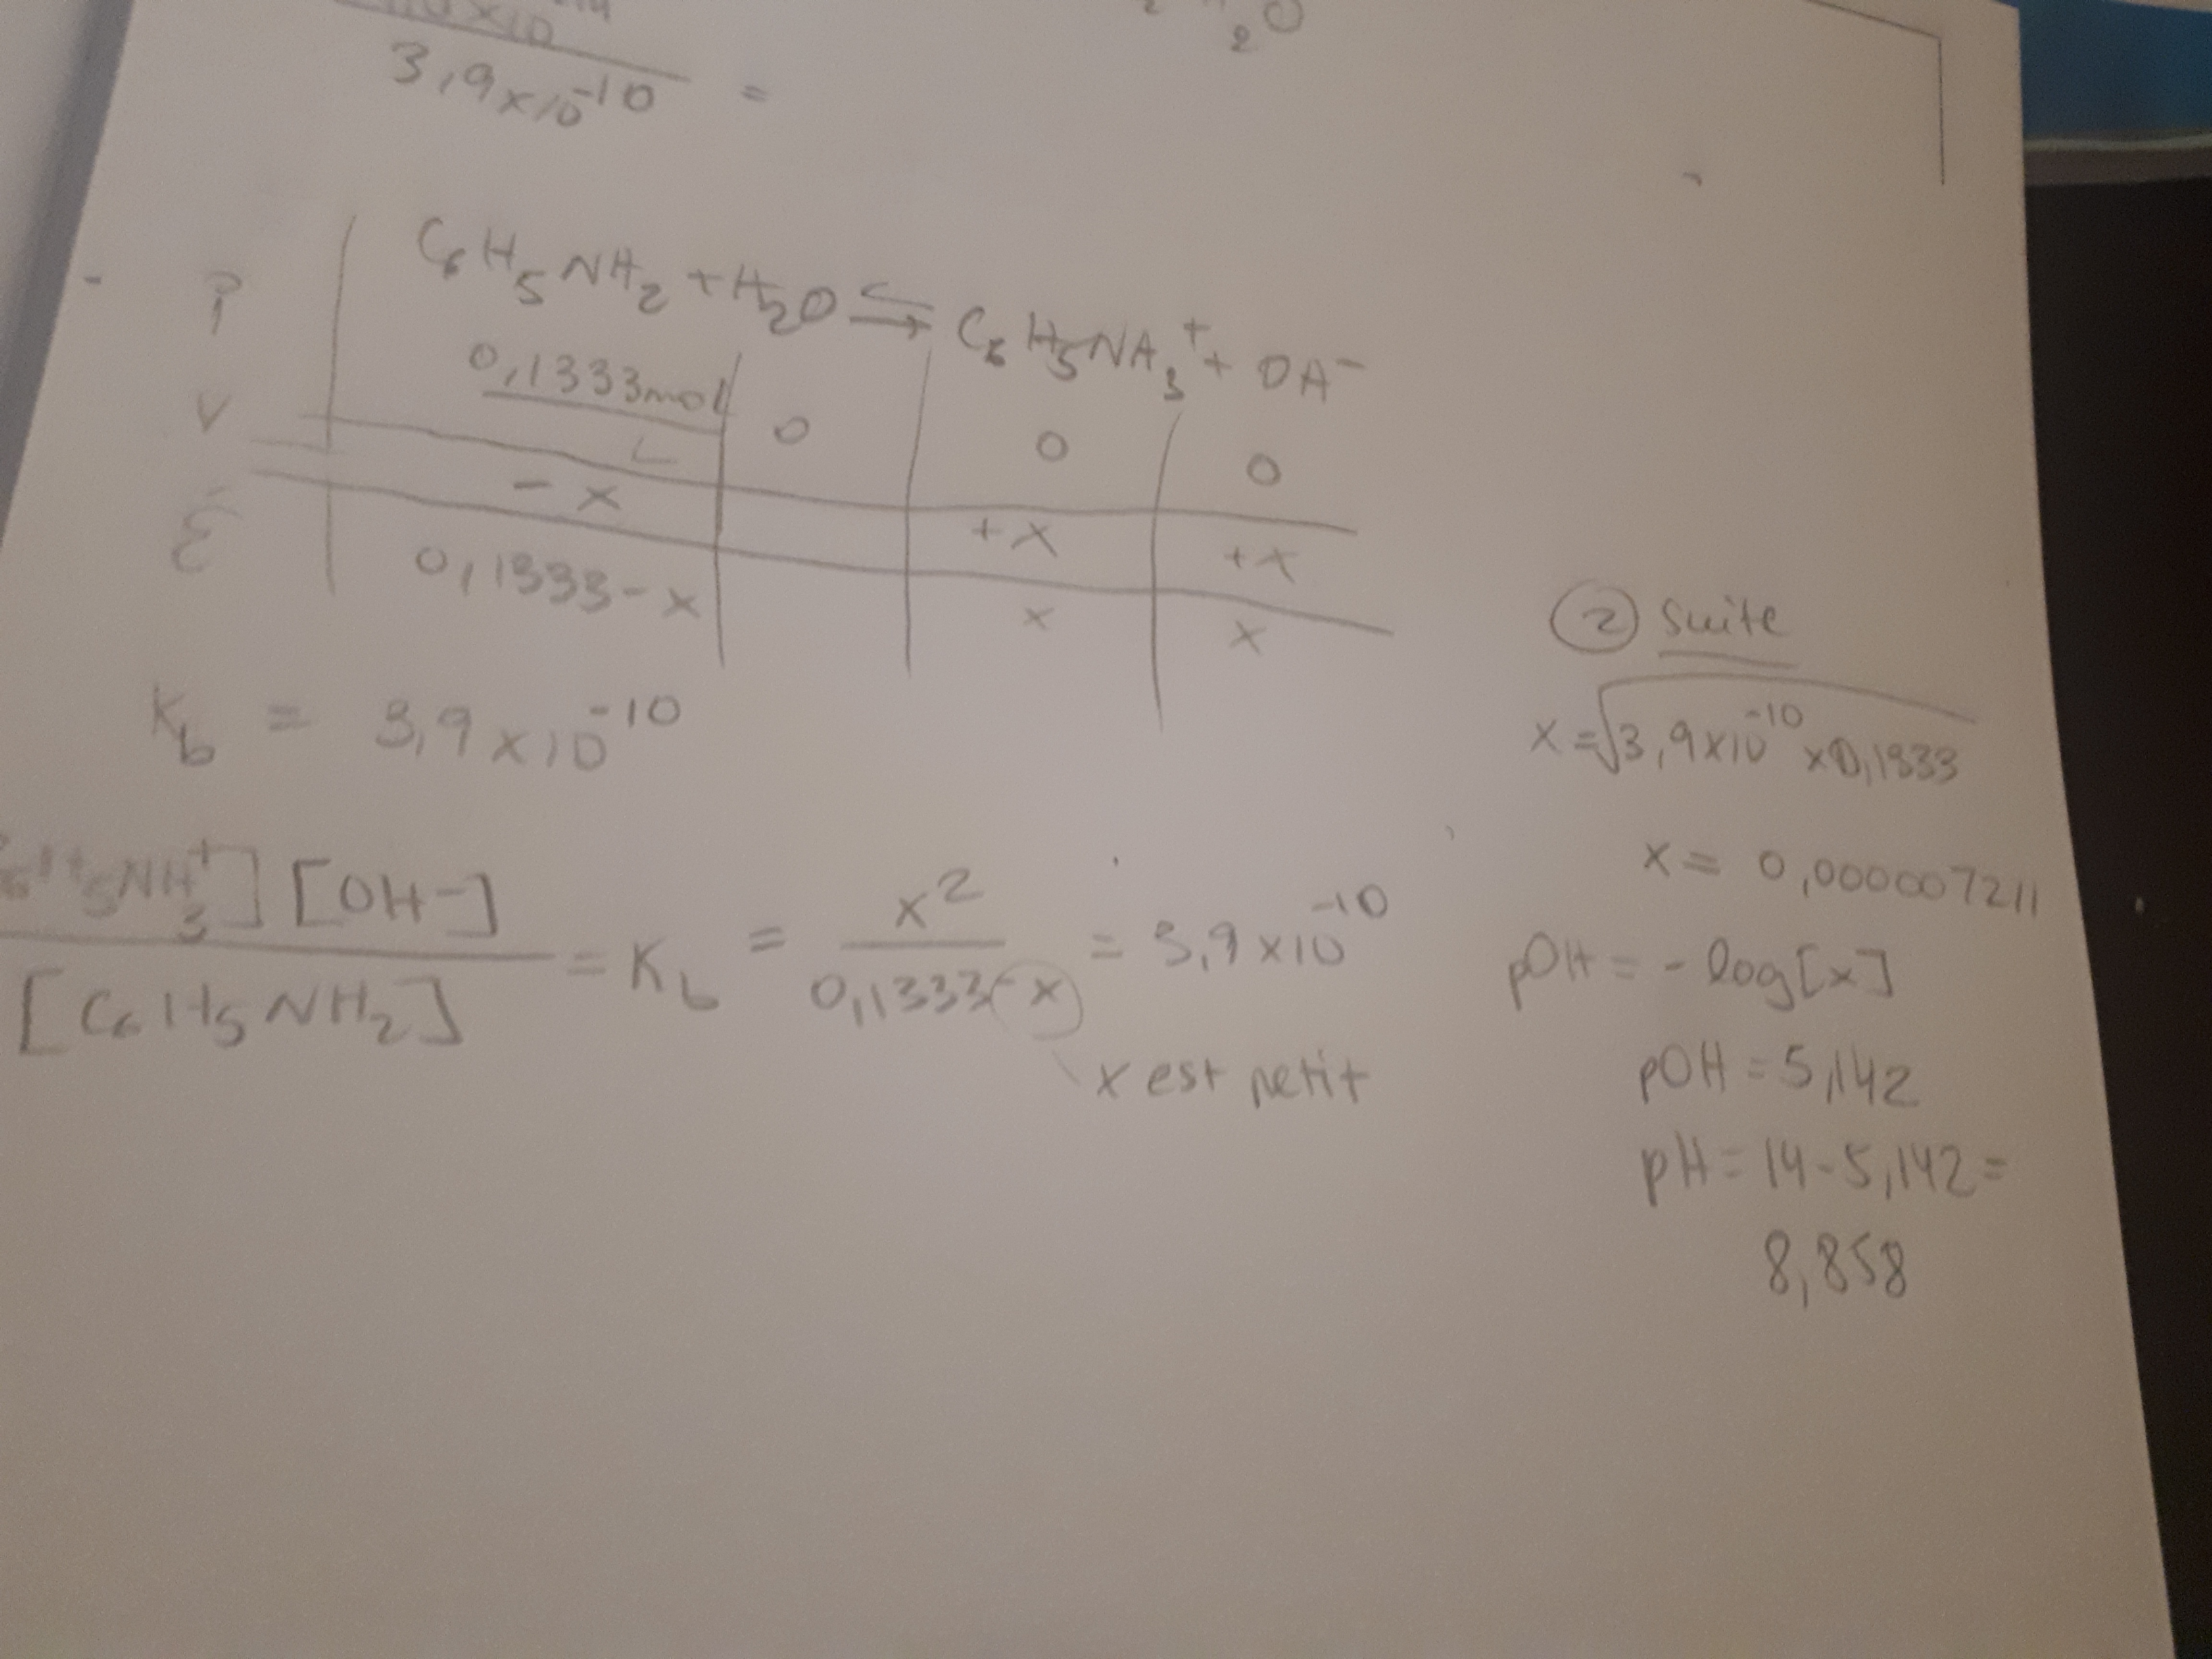 x10
3,9x10⁻¹⁰ =
₂O
C₆H₅NH₂ + H₂O ⇌ C₆H₅NH₃⁺ + OH⁻
0,1333mol/L | 0 | 0 | 0
V | -x | | +x | +x
É | 0,1333-x | | x | x
Kb = 3,9x10⁻¹⁰
[C₆H₅NH₃⁺][OH-] / [C₆H₅NH₂] = Kb = x² / 0,1333-x = 3,9x10⁻¹⁰
x est petit
② Suite
x = √3,9x10⁻¹⁰ x0,1333
x = 0,000007211
pOH = -log[x]
pOH = 5,142
pH = 14-5,142=
8,858